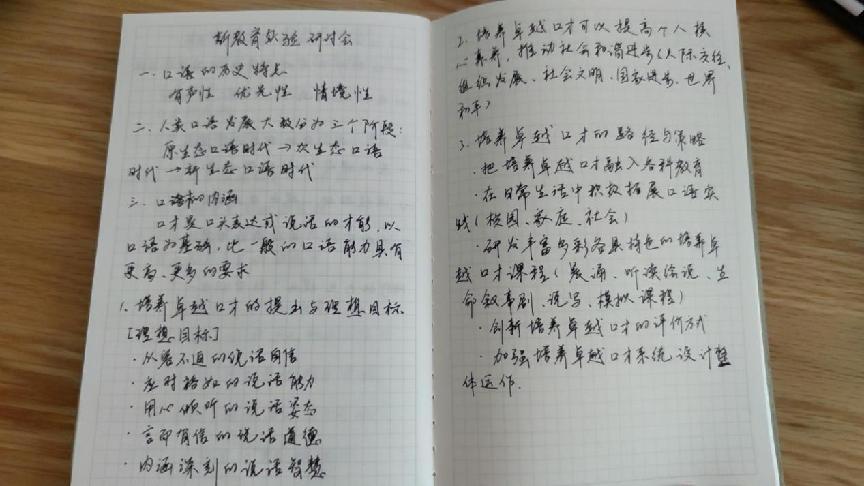 新教育实验研讨会
一、口语的历史特点
有声性 优先性 情境性
二、人类口语发展大致分为三个阶段:
原生态口语时代→次生态口语
时代→新生态口语时代
三、口语的内涵
口才是口头表达或说话的才能,以
口语为基础,比一般的口语能力具有
更高、更多的要求
1.培养卓越口才的提出与理想目标
[理想目标]
·从容不迫的说话自信
·应对裕如的说话能力
·用心倾听的说话姿态
·言而有信的说话道德
·内涵深刻的说话智慧
2.培养卓越口才可以提高个人核
心素养,推动社会和谐进步(人际交往、
组织发展、社会文明、国家进步、世界
和平)
3.培养卓越口才的路径与策略
·把培养卓越口才融入各科教育
·在日常生活中积极拓展口语实
践(校园、家庭、社会)
·研发丰富多彩各具特色的培养卓
越口才课程(晨诵、听读绘说、生
命叙事剧、说写、模拟课程)
·创新培养卓越口才的评价方式
·加强培养卓越口才系统设计整
体运作.